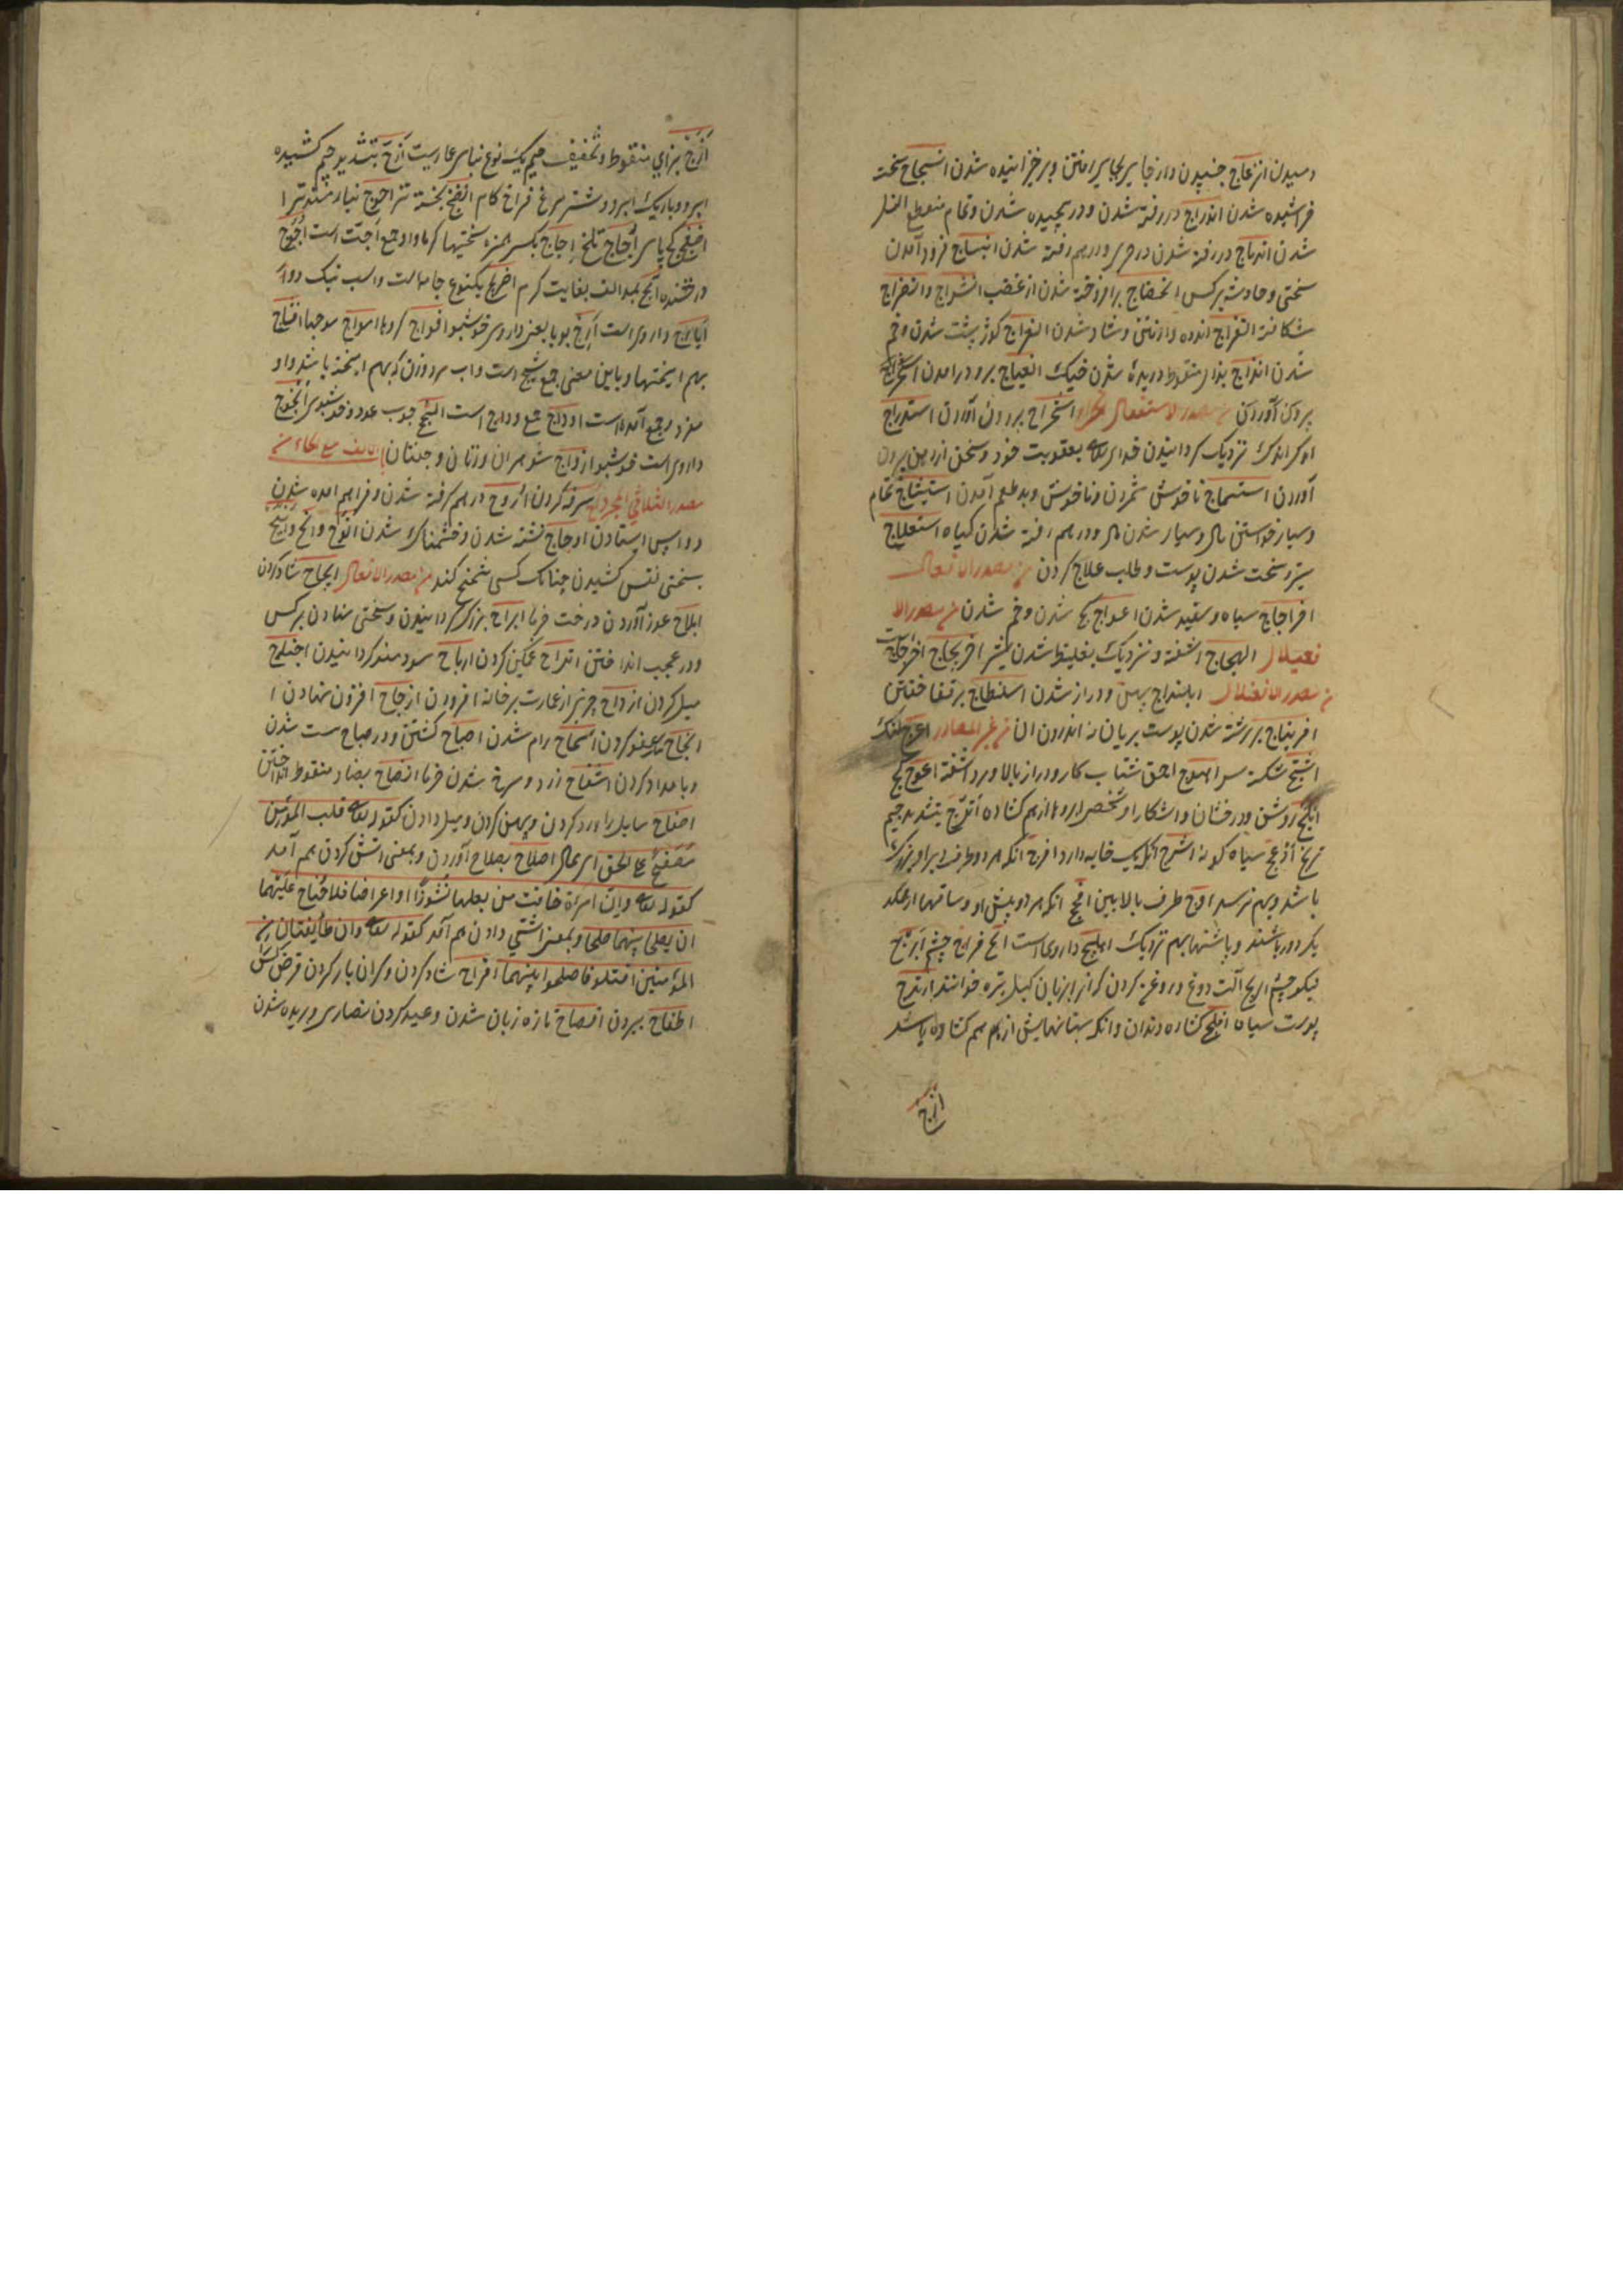 دمیدن انزعاج جنبیدن و از جایی بجایی رفتن و برخیزانیده شدن انسحاج سخت
خراشیده شدن اندراج در رفته شدن و در پیچیده شدن و تمام منقطع النسل
شدن اندماج در رفته شدن در چیزی و در هم رفته شدن انبساج فرود آمدن
سختی و حادثه بر کس انخفاج برافروخته شدن از غضب انشراج و انضراج
شکافته انفراج اندوه وا رفتن و شاد شدن انعراج کوژ پشت شدن و خم
شدن انذاج بذال منقوط دریده شدن خیک
بیرون آوردن مصدر الاستفعال استخراج بیرون آوردن استدراج
اندک اندک نزدیک گردانیدن خدای تعالی بعقوبت خود و سخن از دهن بیرون
آوردن استسماج ناخوش شمردن و ناخوش و بد طعم آمدن استنتاج تمام
و بسیار خواستن مال و بسیار شدن مال و در هم رفته شدن گیاه استعلاج
ستبر و سخت شدن پوست و طلب علاج کردن من مصدر الافعلال
اخراجاج سیاه و سفید شدن اعوجاج کج شدن و خم شدن من مصدر الا
فعیلال الهجاج آشفته و نزدیک بغلیظ شدن شیر
من مصدر الافعنلال ابلنداج پهن و دراز شدن اسلنطاح بر قفا خفتن
افرنباج برشته شدن پوست بریان نه اندرون آن من غیر المصادر اعرج لنگ
اشج شکسته سر اهوج احمق شتاب کار و دراز بالا و مرد آشفته اعوج کج
ابلج روشن و درخشان و آشکارا و شخصی ابروها از هم گشاده اترج بتشدید جیم
ترنج ادعج سیاه گونه اشرج آنکه یک خایه دارد افرج آنکه هر دو طرف دبر او بزرگ
باشد و بهم نرسد اوج طرف بالایین افحج آنکه هر دو پیش او و ساقها از همدیگر
دور باشند و پاشنها بهم نزدیک اهلیلج داروی است انج فراخ چشم ابرج
نیکو چشم اریج آلت دوغ و روغن کردن که آنرا بزبان گیل نیره خوانند ارندج
پوست سیاه افلج گشاده دندان و آنکه میان پایش از هم گشاده باشد
ازج
ازج بزای منقوط و تخفیف جیم یک نوع بنای عمارتست ازج بتشدید جیم کشیده
ابرو و باریک ابرو و شتر مرغ فراخ گام انضج پخته تر احوج نیازمندتر ا
اجاج تلخ اجاج بکسر همزه سختیها گرما و او جمع اجت است اجوج
درخشنده اجج بمد الف بغایت گرم اضریج یکنوع جامه است و اسب نیک دونده
ایارج دارویی است ارج بویا یعنی داروی خوشبو افواج گروهها امواج موجها امشاج
بهم آمیختها و باین معنی جمع مشیج است و آب مرد و زن که بهم آمیخته باشد و او
مفرد و جمع آمده است اوداج جمع وداج است النجج چوب عود و خوشبوی النجوج
دارویی است خوشبو ازواج شوهران و زنان و جفتان باب الالف مع الحاء من
مصدر الثلاثی المجرد اح سرفه کردن ازوح در هم گرفته شدن و فراهم آمده شدن
و واپس ایستادن اوجاح تشنه شدن و خشمناک شدن انوح و انح و انیح
بسختی نفس کشیدن چنانک کسی تنحنح کند من مصدر الافعال ابجاح شاد کردن
ابلاح غوره آوردن درخت خرما ابراح بزرگ گردانیدن و بسختی نهادن بر کس
و در عجب انداختن اتراح غمگین کردن ارباح سودمند گردانیدن اجناح
میل کردن ازداح چیزی از عمارت بر خانه افزودن ازجاح افزون نهادن ا
اسجاح عفو کردن اسماح رام شدن اصباح گشتن و در صباح مست شدن
و بامداد کردن اشقاح زرد و سرخ شدن خرما انضاح بضاد منقوط انداختن
اصفاح سایل را رد کردن و پهن کردن و میل دادن کقوله تعالی قلب المؤمن
مصفح علی الحق ای ممال اصلاح بصلاح آوردن و بمعنی آشتی کردن هم آمده
کقوله تعالی و ان امرأة خافت من بعلها نشوزا او اعراضا فلا جناح علیهما
ان یصلحا بینهما صلحا و بمعنی آشتی دادن هم آمد کقوله تعالی و ان طایفتان من
المؤمنین اقتتلوا فاصلحوا بینهما افراح شاد کردن و گران بار کردن قرض کس را
اطفاح بیرون افصاح تازه زبان شدن و عید کردن نصاری و بریده شدن